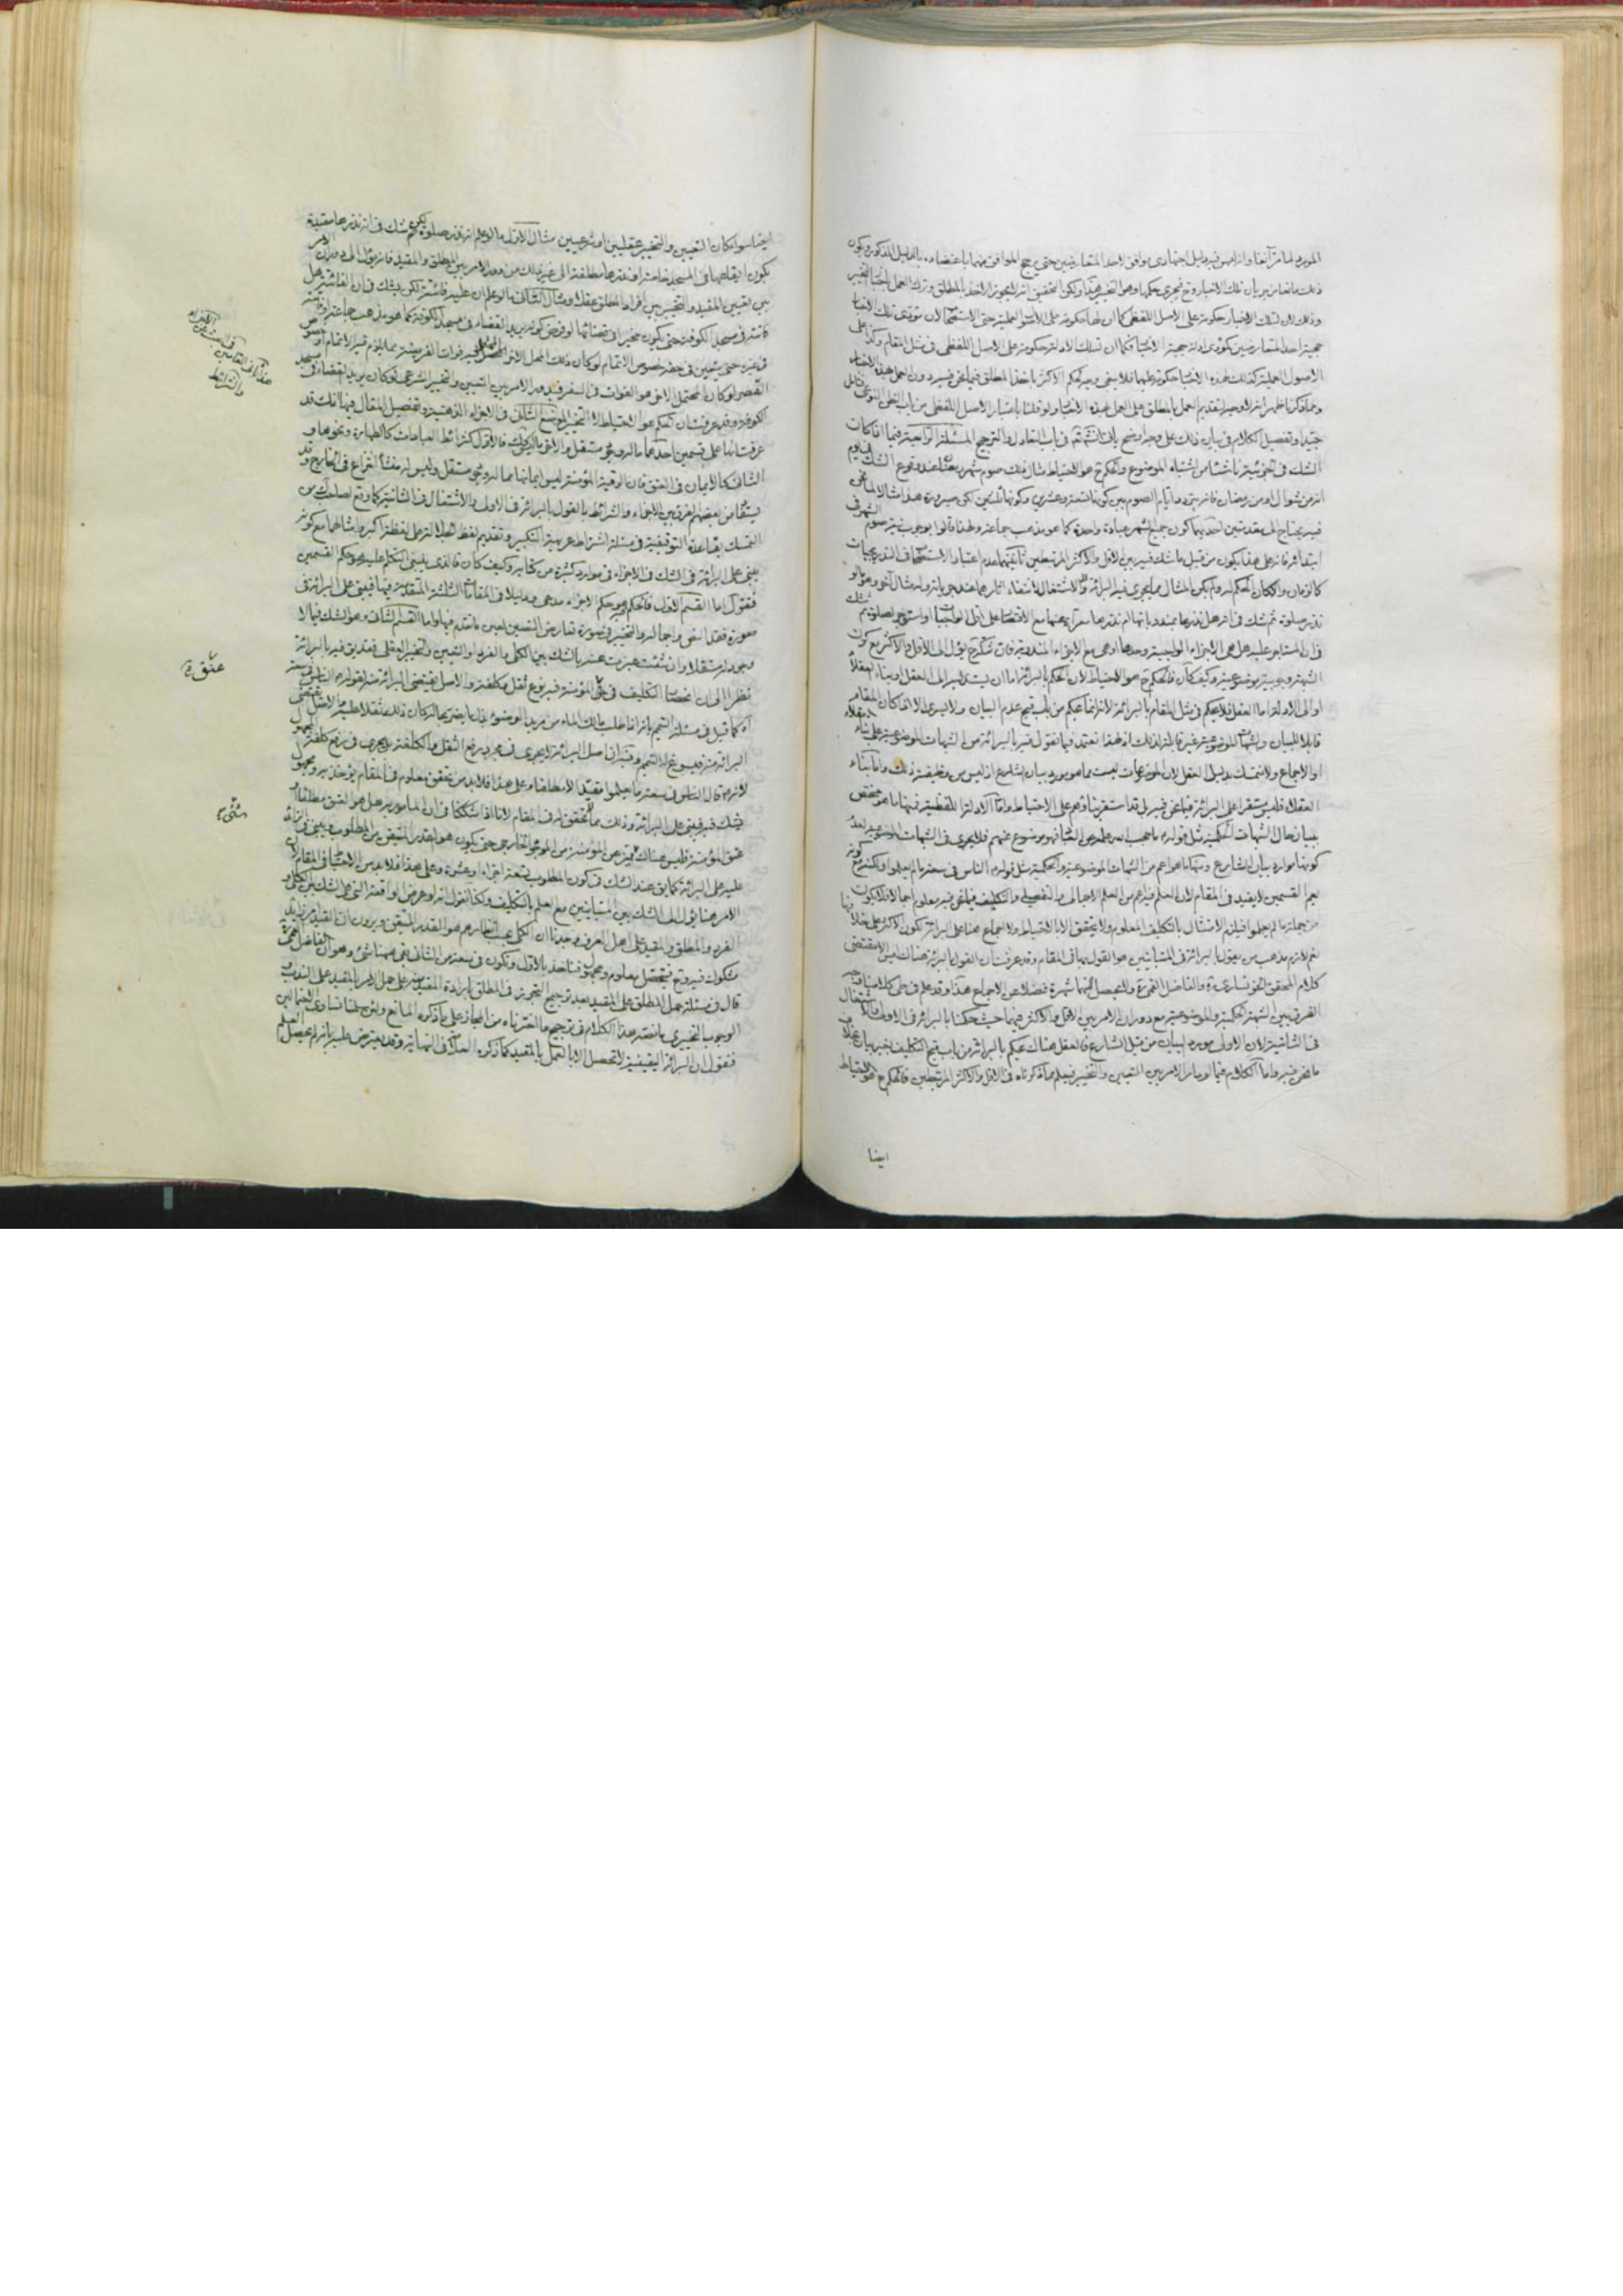 المورد لما مر آنفا وان لم يكن فيه دليل اجتهادى موافق لاحد المتعارضين حتى يرجح الموافق منهما باعتضاده بالدليل المذكور ويكون
ذلك مانعا من جريان تلك الاخبار وح فيجرى حكمها وهو التخيير هذا ولكن التحقيق انه لا يجوز الاخذ بالمطلق وترك العمل باخبار التخيير
وذلك لان لتلك الاخبار حكومة على الاصل اللفظى كما ان لها حكومة على الاصول العملية حتى الاستصحاب لان مؤدى تلك الاخبار
حجية احد المتعارضين كمؤدى ادلة حجية الاخبار فكما ان تلك الادلة حكومة على الاصل اللفظى فى مثل المقام وكذا على
الاصول العملية كذلك لهذه الاخبار حكومة عليهما فلا يبقى وجه لحكم الاكثر باخذ المطلق فيما نحن فيه دون العمل بهذه الاخبار
ومما ذكرنا ظهر انه لا وجه لتقديم العمل بالمطلق على العمل بهذه الاخبار ولو قلنا باعتبار الاصل اللفظى من باب الظن النوعى
جيدا وتفصيل الكلام فى بيان ذلك على وجه اوضح يأتى انش تع فى باب التعادل والترجيح المسئلة الرابعة فيما اذا كان
الشك فى الجزئية ناشئا من اشتباه الموضوع والحكم ح هو الاحتياط مثال ذلك صوم شهر رمضان عند وقوع الشك فى يوم
انه من شوال او من رمضان فانه يتردد ايام الصوم بين كونها تسعة وعشرين وكونها ثلثين لكن صيرورة هذا مثالا لما نحن
فيه يحتاج الى مقدمتين احديهما كون جميع الشهر عبادة واحدة كما هو مذهب جماعة ولهذا قالوا بوجوب نية صوم الشهر فى
ابتدائه فانه على هذا يكون من قبيل ما شك فيه بين الاقل والاكثر المرتبطين ثانيتهما عدم اعتبار الاستصحاب فى التدريجيات
كالزمان والا لكان الحكم له ولم يكن المثال مما يجرى فيه البرائة والاشتغال لانتفاء اثارهما عند جريانه وله مثال آخر وهو ما لو
نذر صلوة ثم شك فى انه هل نذرها بمندوباتها ام نذرها معرآة عنها مع الاقتصار على اقل الواجب او استوجر لصلوة ثم شك
فى ان المستاجر عليه هل هى الاجزاء الواجبة وحدها او هى مع الاجزاء المندوبة فان الشك ح يؤل الى الاقل والاكثر مع كون
الشبهة وجوبية موضوعية وكيف كان فالحكم ح هو الاحتياط لان الحكم بالبرائة اما ان يستند فيه الى العقل او بناء العقلاء
او الى الادلة اما العقل فلا يحكم فى مثل المقام بالبرائة لانه انما يحكم من باب قبح عدم البيان ولا يجرى الا اذا كان المقام
قابلا للبيان والشبهات الموضوعية غير قابلة لذلك او لهذا نعتمد فيما نقول فيه بالبرائة من الشبهات الموضوعية على بناء العقلاء
او الاجماع ولا نتمسك بدليل العقل لان الموضوعات ليست مما هو مورد بيان الشارع اذ ليس من وظيفته ذلك واما بناء
العقلاء فلم يستقر على البرائة فيما نحن فيه بل قد استقر بناؤهم على الاحتياط واما الادلة اللفظية فمنها ما هو مختص
ببيان حال الشبهات الحكمية مثل قوله ع ما حجب الله علمه عن العباد فهو موضوع عنهم فلا يجرى فى الشبهات الموضوعية لعدم
كونها موارد بيان الشارع ومنها ما هو اعم من الشبهات الموضوعية والحكمية مثل قوله ع الناس فى سعة ما لم يعلموا ولكنه مع كونه
يعم القسمين لا يفيد فى المقام لان العلم فيه اعم من العلم الاجمالى والتفصيلى والتكليف فيما نحن فيه معلوم اجمالا فلا يكون
من جملة ما لم يعلموا فيلزم الامتثال بالتكليف المعلوم ولا يتحقق الا بالاحتياط ولا اجماع هنا على البرائة لكون الاكثر على خلافها
نعم لازم مذهب من يقول بالبرائة فى المتباينين هو القول بها فى المقام وقد عرفت ان القول بالبرائة هناك ليس الا مقتضى
كلام المحقق الخونسارى ره والفاضل القمى ره ولا يحصل منهما شهرة فضلا عن الاجماع هذا وقد علم فى طى كلامنا وجه
الفرق بين الشبهة الحكمية والموضوعية مع دوران الامر بين الاقل والاكثر فيهما حيث حكمنا بالبرائة فى الاولى والاشتغال
فى الثانية لان الاولى مورد البيان من قبل الشارع فالعقل هناك يحكم بالبرائة من باب قبح التكليف بغير بيان بخلاف
ما نحن فيه واما الكلام فيما لو دار الامر بين التعيين والتخيير فيعلم مما ذكرناه فى الاقل والاكثر المرتبطين فالحكم ح هو الاحتياط
ايضا
ايضا سواء كان التعيين والتخيير عقليين او شرعيين مثال الاول ما لو علم انه نذر صلوة لكن شك فى انه نذرها مقيدة
بكون ايقاعها فى المسجد خاصة او نذرها مطلقة الى غير ذلك من دوران الامر بين المطلق والمقيد فانه يؤل الى دوران الامر
بين تعيين المقيد والتخيير بين افراد المطلق عقلا ومثال الثانى ما لو علم ان عليه فائتة لكن يشك فى ان الفائتة هل
فاتته فى مسجد الكوفة حتى يكون مخيرا فى قضائها لو فرض كونه يريد القضاء فى مسجد الكوفة كما هو مذهب جماعة او فاتته
فى غيره حتى يتعين فى حقه خصوص الاتمام لو كان ذلك المحل الاخر المحتمل فيه فوات الفريضة مما يلزم فيه الاتمام او خصوص
القصر لو كان المحتمل الاخر هو الفوات فى السفر فيدور الامر بين التعيين والتخيير الشرعى لو كان يريد القضاء فى مسجد
الكوفة وقد عرفت ان الحكم هو الاحتياط لا التخيير الموضع الثانى فى الاجزاء الذهنية وتفصيل المقال فيها انك قد
عرفت انها على قسمين احدهما ما له وجود مستقل والاخر ما ليس كذلك فالاول كشرائط العبادات كالطهارة ونحوها و
الثانى كالايمان فى العتق فان الرقبة المؤمنة ليس ايمانها مما له وجود مستقل وليس له منشأ انتزاع فى الخارج وقد
يستفاد من بعضهم الفرق بين الاجزاء والشرائط بالقول بالبرائة فى الاولى والاشتغال فى الثانية كما وقع لصاحب
التمسك بقاعدة التوقيفية فى مسئلة اشتراط عربية التكبير وتقديم لفظ الجلالة على لفظة اكبر وامثالهما مع كونه
يبنى على البرائة فى الشك فى الاجزاء فى موارد كثيرة من كتابه وكيف كان فالذى ينبغى التكلم عليه هو حكم القسمين
فنقول اما القسم الاول فالحكم فيه هو حكم الاجزاء مدعى ودليلا فى المقامات الثلثة المتقدمة فيها فيبنى على البرائة فى
صورة فقد النص واجماله والتخيير فى صورة تعارض النصين لعين ما تقدم فيها واما القسم الثانى وهو الشك فيما لا
وجود له مستقلا وان شئت عبرت عنه بالشك بين الكلى والفرد او التعيين والتخيير العقلى فقد يق فيه بالبرائة
نظرا الى ان اختصاص التكليف فى عتق المؤمنة فيه نوع ثقل وكلفة والاصل يقتضى البرائة منه لقوله ع الناس فى سعة
اه كما قيل فى مسئلة التيمم بانه اذا طلب مالك الماء من مريد الوضوء مالا يضر بحاله كان ذلك ثقلا عليه والاصل يقتضى
البرائة منه فيسوغ له التيمم وفيه ان اصل البرائة لا يجرى فى مجرد رفع الثقل والكلفة بل يجرى فى رفع كلفة المجهول
لانه ع قال الناس فى سعة ما لم يعلموا مقيدا لا مطلقا وعلى هذا فلا بد من تحقق معلوم فى المقام يؤخذ به ومجهول
يشك فيه فيبنى على البرائة وذلك مما لم يتحقق له فى المقام لانا اذا شككنا فى ان المامور به هل هو العتق مطلقا او
عتق المؤمنة فليس هناك متميز عن المؤمنة من الموجود الخارجى حتى يكون هو القدر المتيقن من المطلوب ويبنى فى الزائد
عليه على البرائة كما يق عند الشك فى كون المطلوب تسعة اجزاء او عشرة وعلى هذا فلا بد من الاحتياط فى المقام لان
الامر هنا يؤل الى الشك بين المتباينين مع العلم بالتكليف ولكنا نقول انه لو عرض الواقعة التى هى الشك بين الكلى و
الفرد والمطلق والمقيد على اهل العرف وجدنا ان الكلى بحسب انظارهم هو القدر المتيقن ويرون ان القيد امر زائد
مشكوك فيه وح فيحصل معلوم ومجهول فناخذ بالاول ونكون فى سعة من الثانى بقى هيهنا شئ وهو ان الفاضل القمى ره
قال فى مسئلة حمل المطلق على المقيد بعد ترجيح التجوز فى المطلق بارادة المقيد منه على حمل الامر بالمقيد على الندب و
الوجوب التخييرى ما نصه هذا الكلام فى ترجيح ما اخترناه من المجاز على ما ذكره المانع ولئن سلمنا تساوى الاحتمالين
فنقول ان البرائة اليقينية لا تحصل الا بالعمل بالمقيد كما ذكره العلامة فى النهاية وقد يعترض عليه بانه انما يحصل العلم
عتق ة
شئ
والشرائط